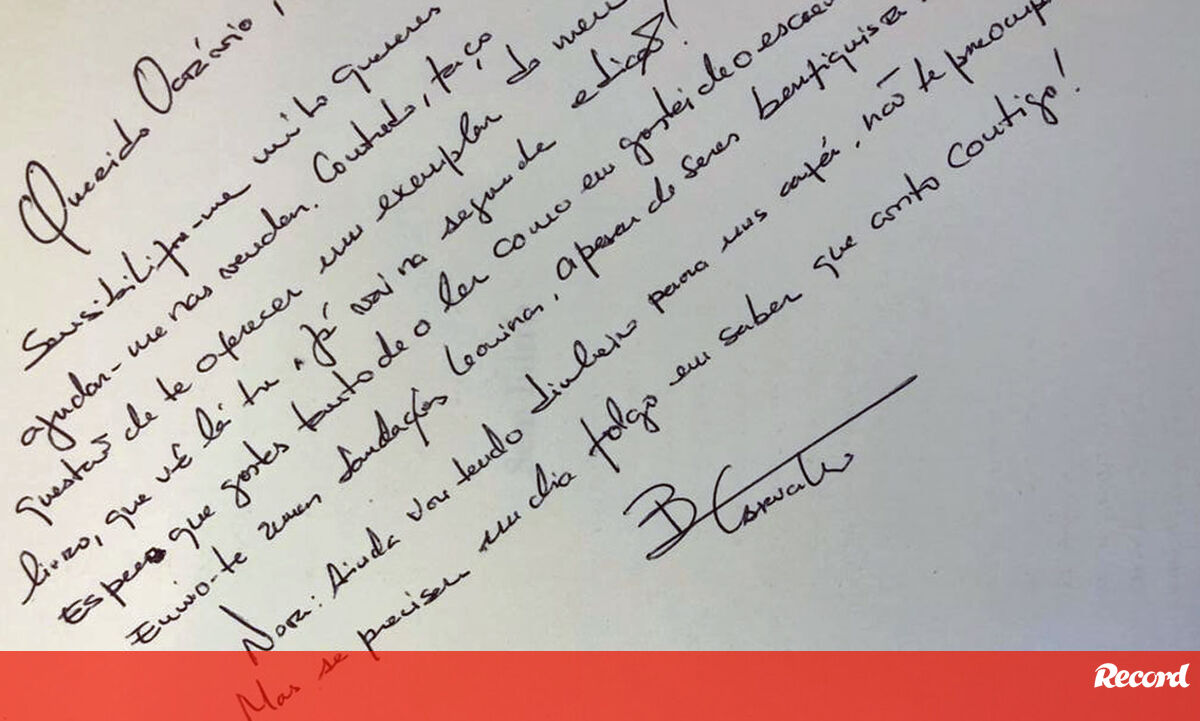 Querido Octávio,
Sensibilizou-me muito quereres
ajudar-me nas vendas. Contudo, faço
questão de te oferecer um exemplar do meu
livro, que vê lá tu, já vai na segunda edição!
Espero que gostes tanto de o ler como eu gostei de o escre
Envio-te umas saudações leoninas, apesar de seres benfiquista
Nota: Ainda vou tendo dinheiro para uns cafés, não te preocup
Mas se precisar um dia folgo em saber que conto contigo!
B Carvalho
Record